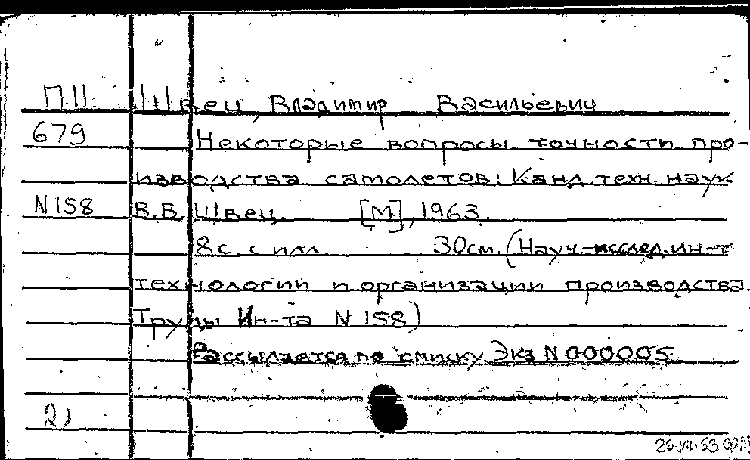 П.II Швец, Владимир Васильевич
679 Некоторые вопросы точности про-
изводства самолетов: Канд. техн. наук
N158 В.В. Швец. [М], 1963.
8с. с илл. 30см. (Науч-исслед. ин-т
технологии и организации производства.
Труды Ин-та N 158)
Рассылается по списку Экз N 000005
2)